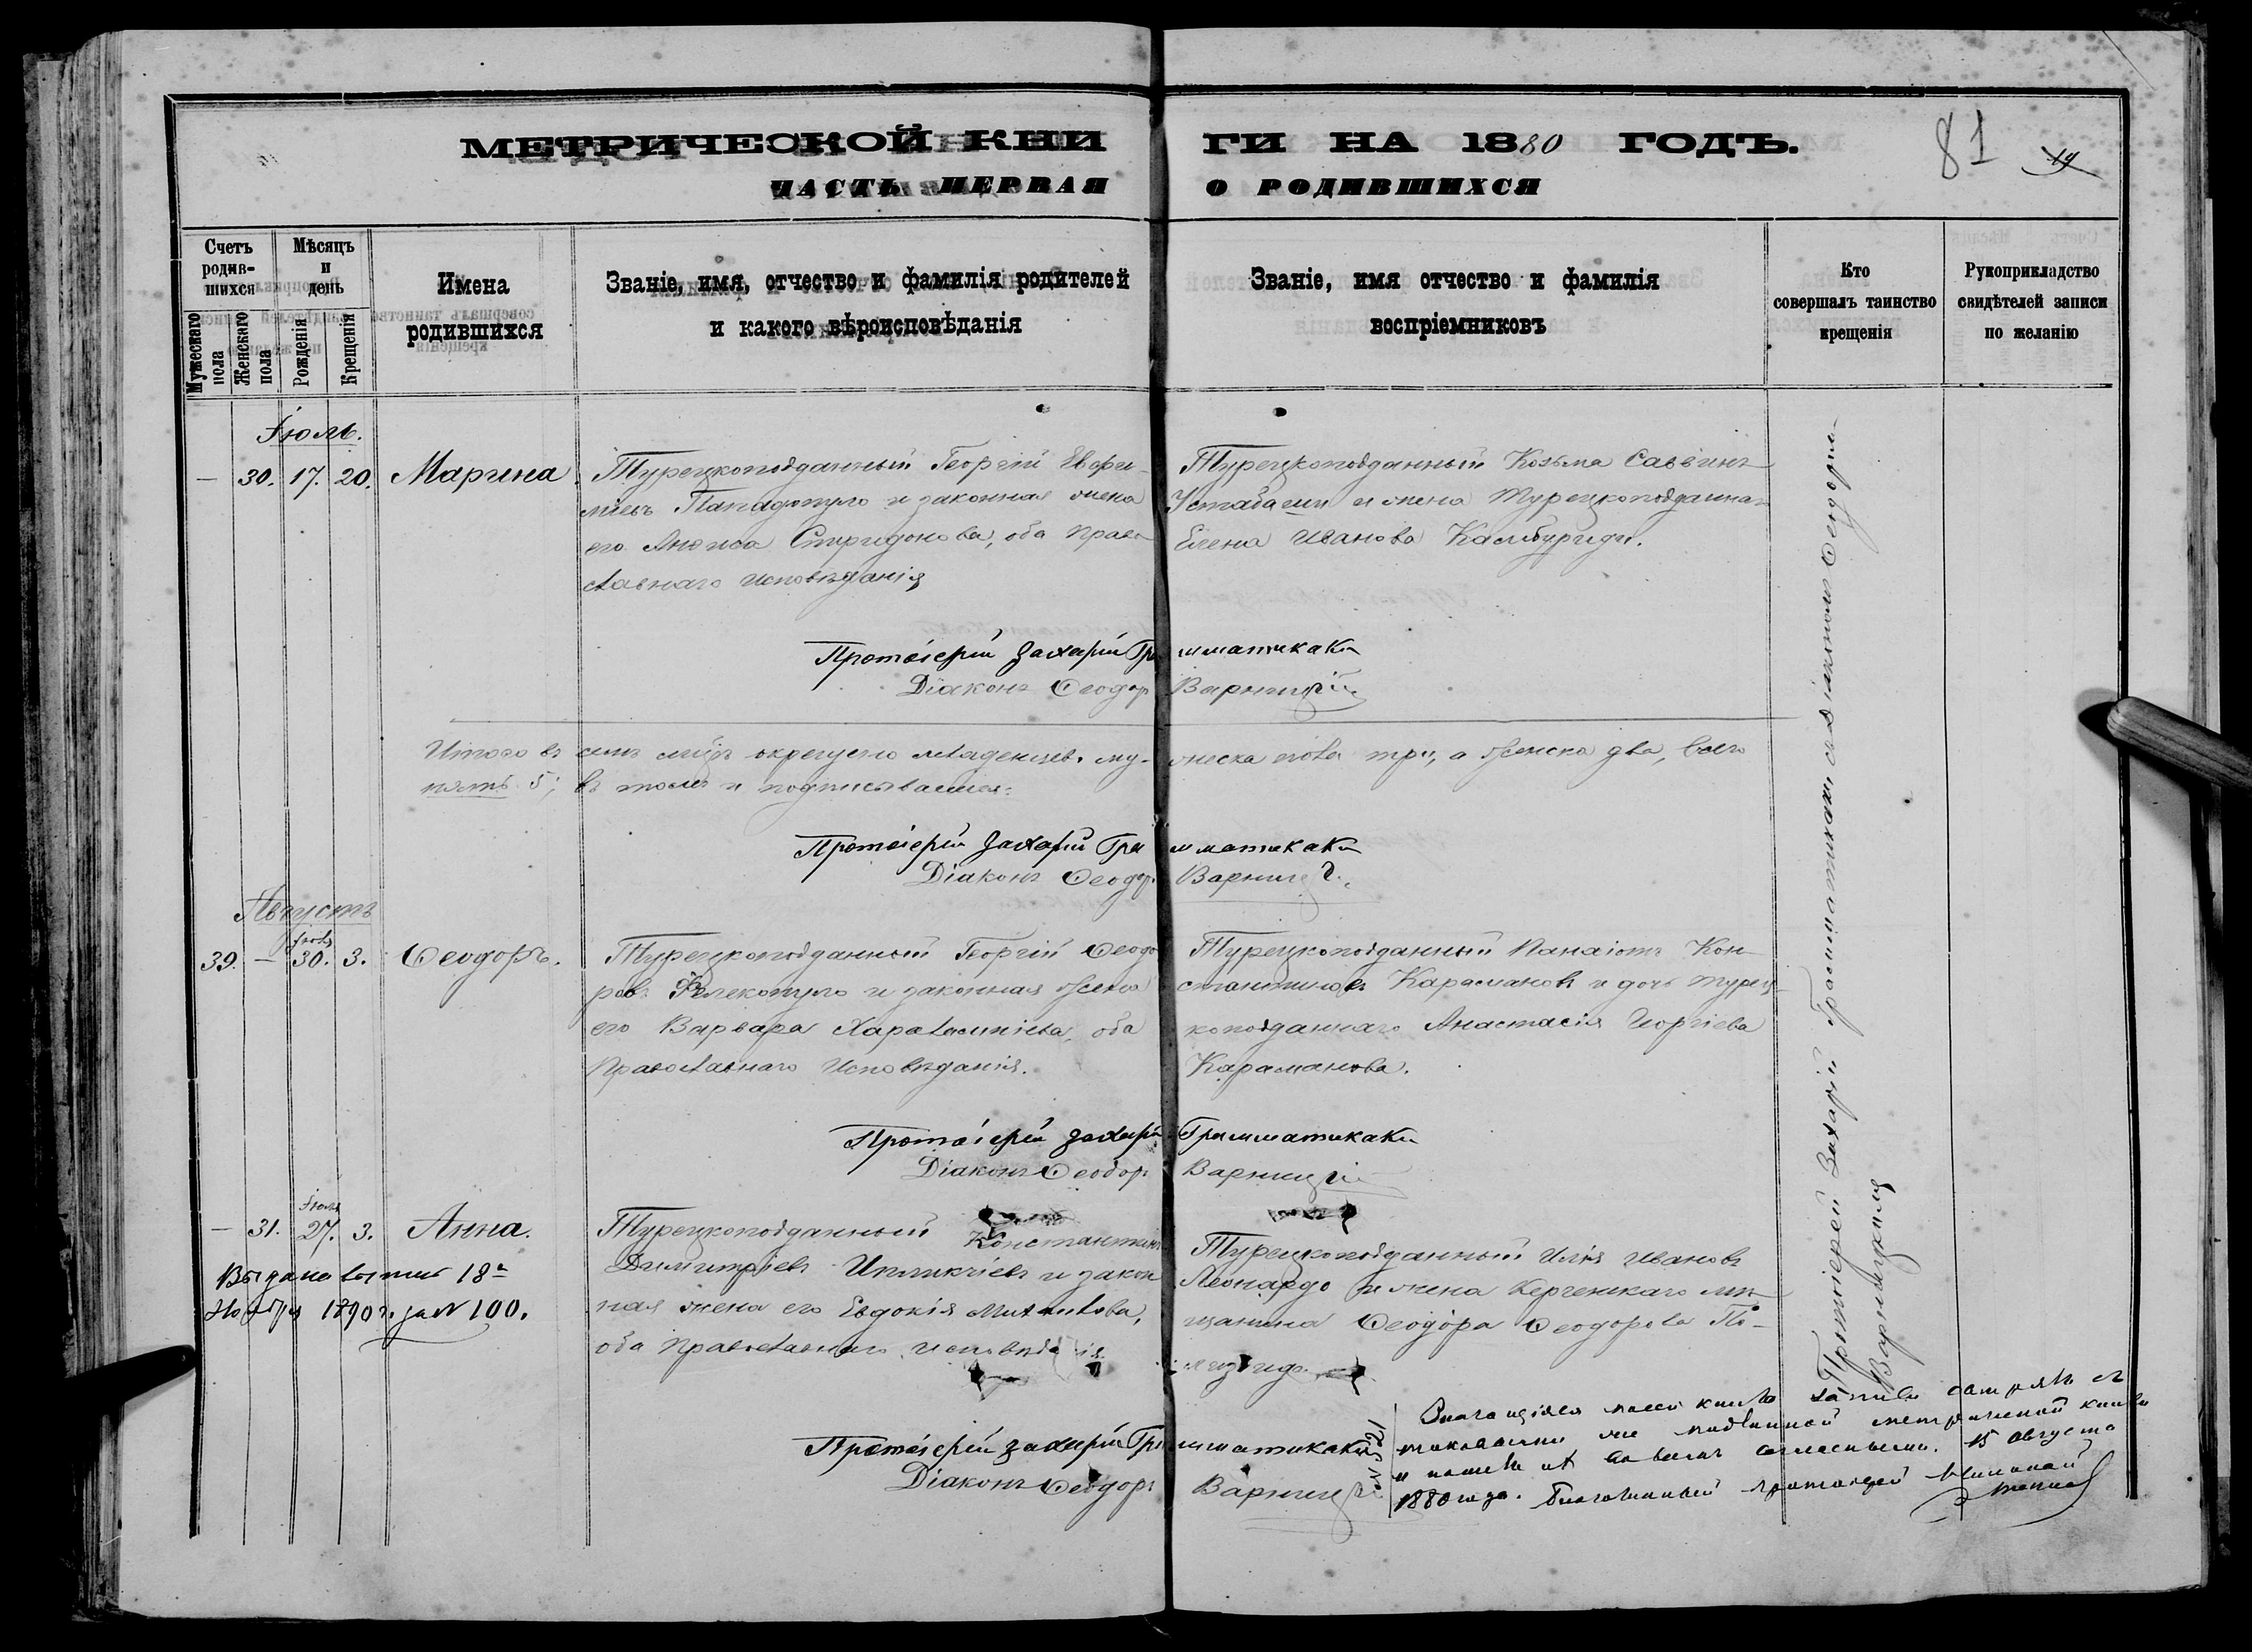 МЕТРИЧЕСКОЙ КНИ ГИ НА 1880 ГОДЪ.
81
19
ЧАСТЬ ПЕРВАЯ О РОДИВШИХСЯ
Счетъ
родив-
шихся
Мужескаго
пола
Женскаго
пола
Мѣсяцъ
и
день
Рожденія
Крещенія
Имена
родившихся
Званіе, имя, отчество и фамилія родителей
и какого вѣроисповѣданія
Званіе, имя отчество и фамилія
воспріемниковъ
Кто
совершалъ таинство
крещенія
Рукоприкладство
свидѣтелей записи
по желанію
Іюль.
— 30. 17. 20. Марина
Турецкоподданный Георгій Евфи-
міевъ Пападопуло и законная жена
его Анюиса Спиридонова, оба Право
славнаго исповѣданія
Турецкоподданный Козьма Саввинъ
Устабаши и жена Турецкоподданна
Елена Иванова Камбуриди.
Протоіерей Захарій Грамматикаки
Діаконъ Ѳеодоръ Варницкій
Итого въ семъ м-цѣ окрещено младенцевъ му- жеска пола три, а женска два, всего
пять 5; въ томъ и подписываемся:
Протоіерей Захарій Грамматикаки
Діаконъ Ѳеодоръ Варницкій
Августъ
39. — Іюля 30. 3. Ѳеодоръ.
Турецкоподданный Георгій Ѳеодо
ровъ и законная жена
его Варвара Харалампіева, оба
Православнаго Исповѣданія.
Турецкоподданный Панаіотъ Кон-
стантиновъ Карамановъ и дочь турец-
коподданнаго Анастасія Георгіева
Караманова.
Протоіерей Захарій Грамматикаки
Діаконъ Ѳеодоръ Варницкій
— 31. Іюля 27. 3. Анна.
Выдана выпись 18го
Ноября 1890 г. за № 100.
Турецкоподданный Константинъ
Димитріевъ Ипликчіевъ и закон
ная жена его Евдокія Михайлова,
оба Православнаго исповѣданія.
Турецкоподданный Илія Ивановъ
Леонардо и жена Керченскаго мѣ-
щанина Ѳеодора Ѳеодорова По-
Протоіерей Захарій Грамматикаки
Діаконъ Ѳеодоръ Варницкій
Протоіерей Захарій Грамматикаки съ діакономъ Ѳеодоромъ
Варницкимъ
№ 521
Значащіяся въ сей книгѣ записи смотрѣлъ съ
таковыми же подлинной метрической книги
и нашелъ их во всемъ согласными. 15 Августа
1880 года. Благочинный протоіерей